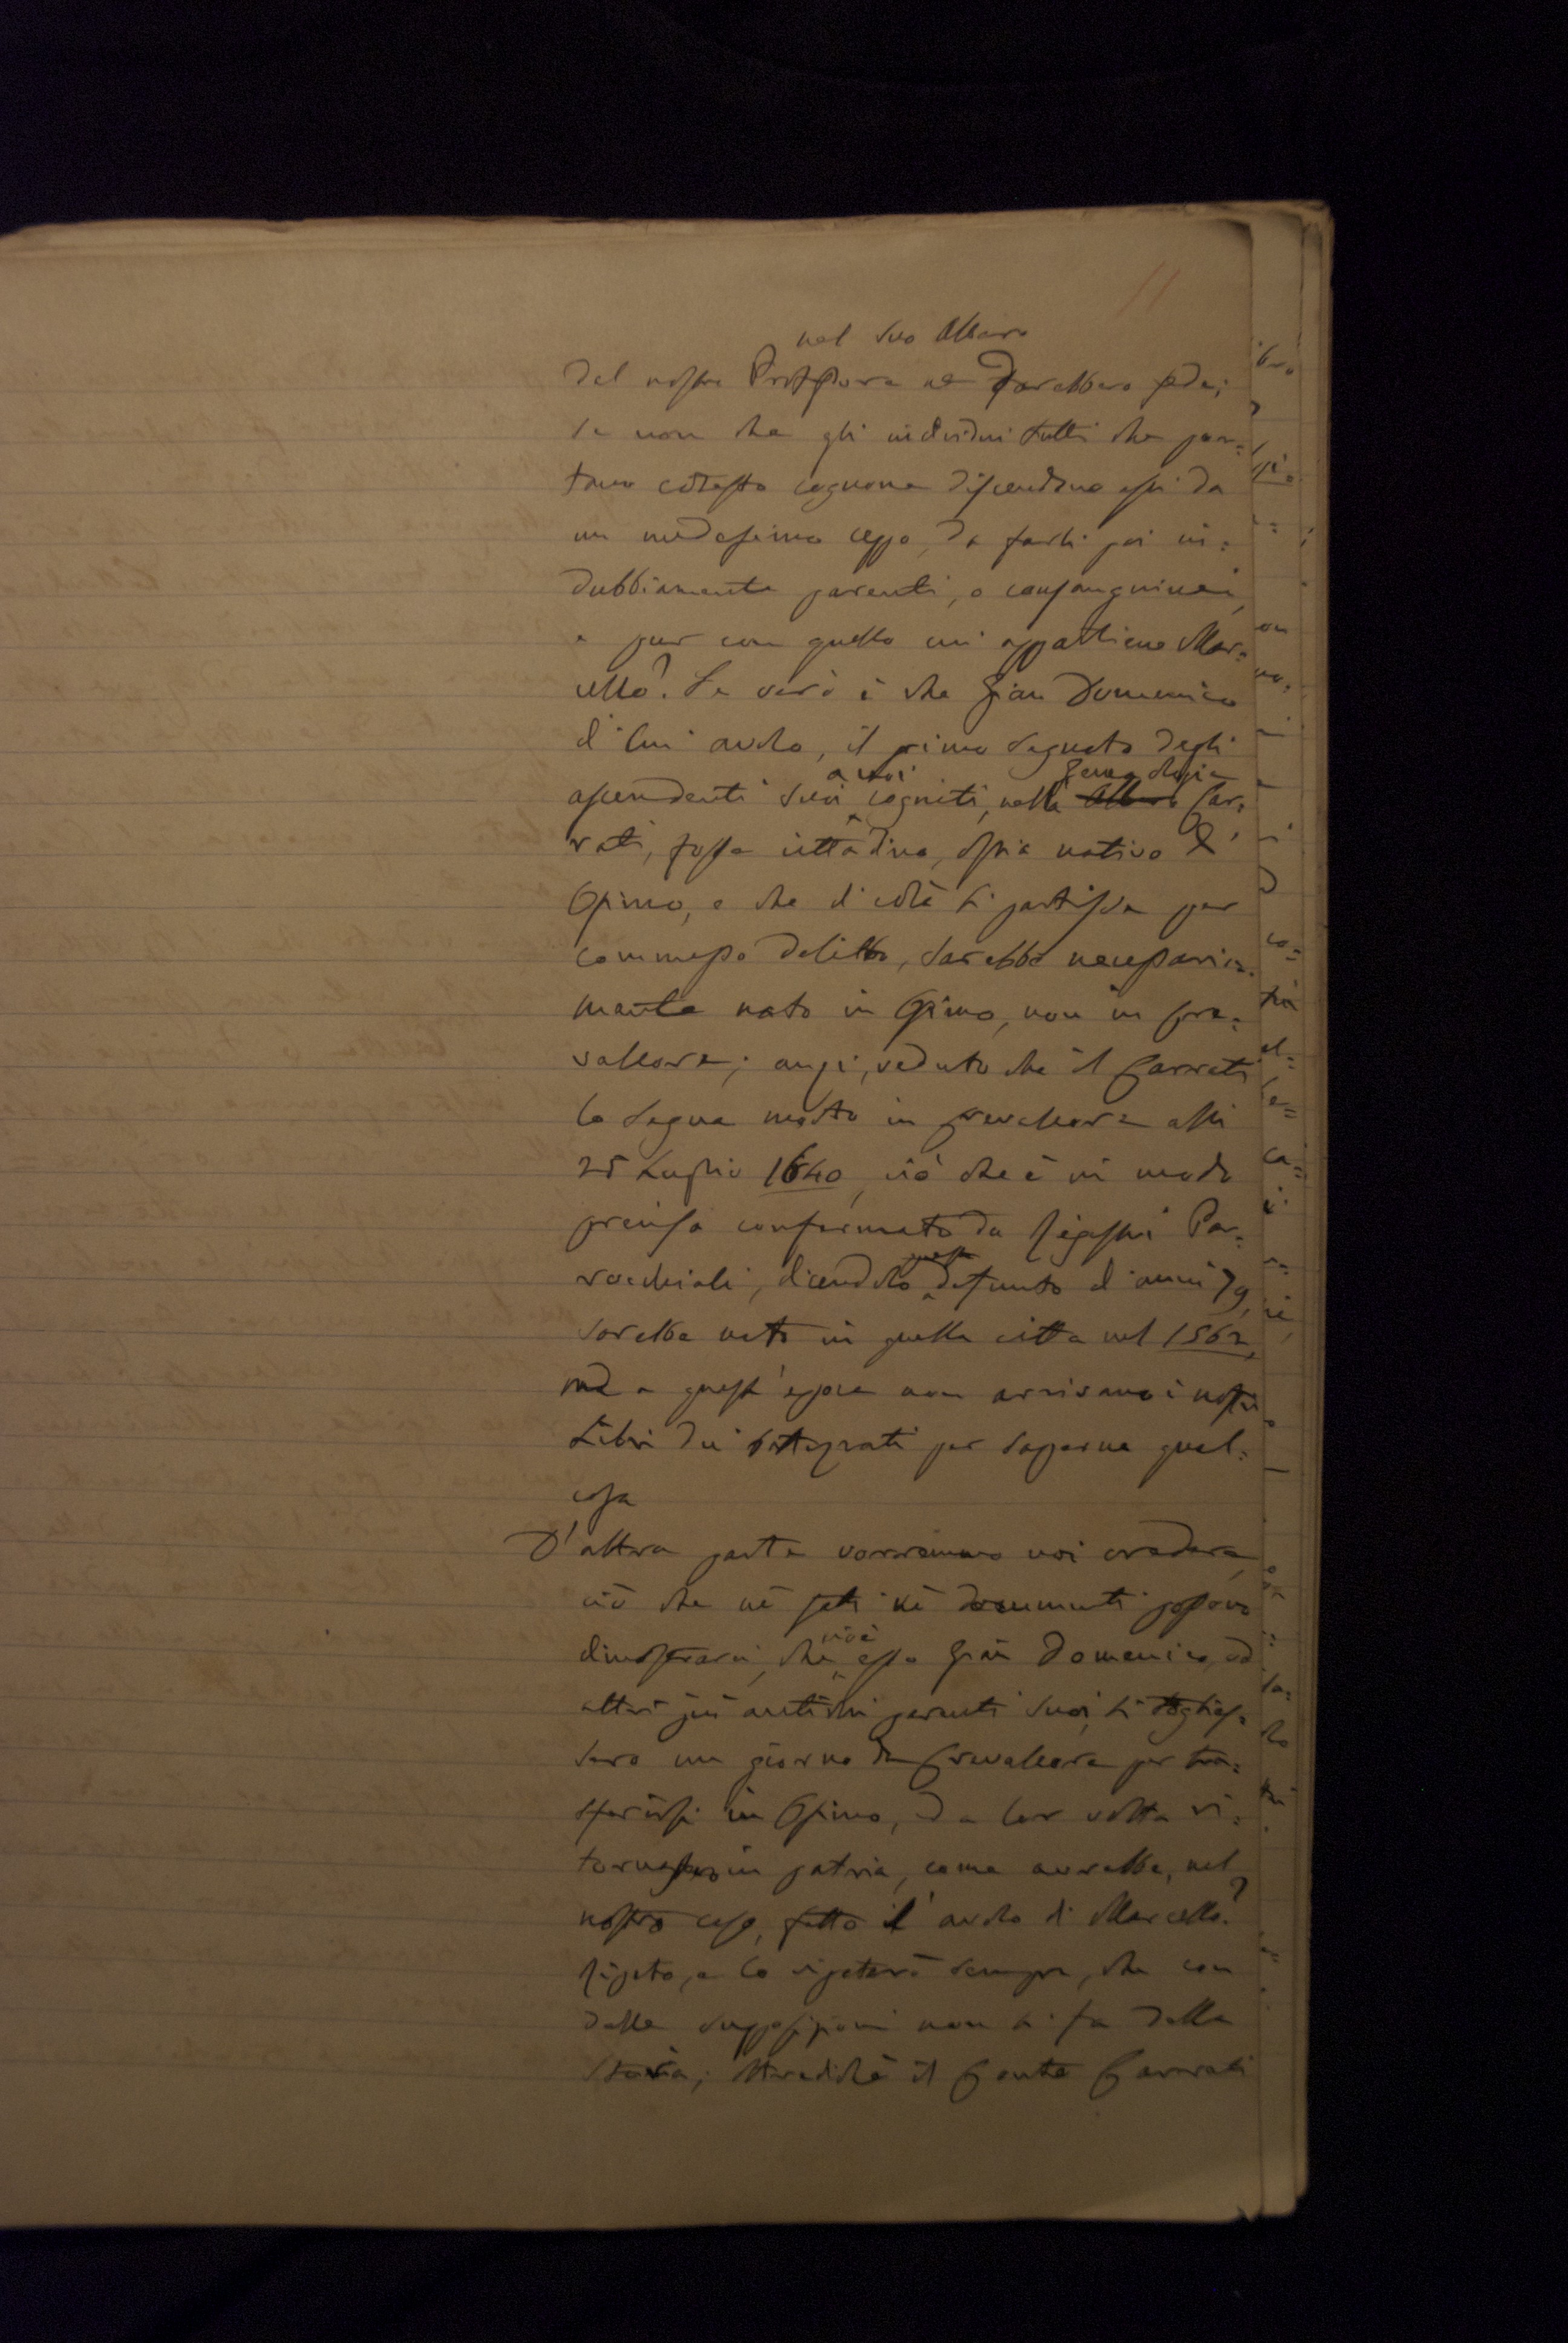 11
nel suo Albero
Del nostro Professore ne darebbero fede;
se non che gli individui tutti che por=
tano cotesto cognome discendono essi da
un medesimo ceppo, da farli poi in=
dubbiamente parenti, o consanguinei,
e pur con quello cui appartiene Mar=
cello? Se vero è che Gian Domenico
di lui avolo, il primo segnato degli
a noi Genealogia
ascendenti suoi cogniti, nella Albero Car=
rati, fosse cittadino, ossia nativo d'
Osimo, e che di colà si partisse per
commesso delitto, sarebbe necessaria=
mente nato in Osimo, non in Cre=
valcore; anzi, veduto che il Carrati
lo segna morto in Crevalcore alli
25 Luglio 1640, ciò che è in modo
preciso confermato da Registri Par=
questo
rocchiali, dicendolo defunto d'anni 79,
sarebbe nato in quella citta nel 1562,
ma a quest'epoca non arrivano i nostri
Libri dei Battezzati per saperne qual=
cosa
D'altra parte vorremmo noi credere,
ciò che nè fatti nè documenti possono
cioè
dimostrarci, che esso Gian Domenico, od
altri più antichi parenti suoi, si togties=
sero un giorno da Crevalcore per tra=
sferirsi in Osimo, ed a lor volta ri=
tornassero in patria, come avrebbe, nel
nostro caso, fatto l'avolo di Marcello?
Ripeto, e lo ripeterò sempre, che con
delle supposizioni non si fa della
Storia; il Conte Carrati